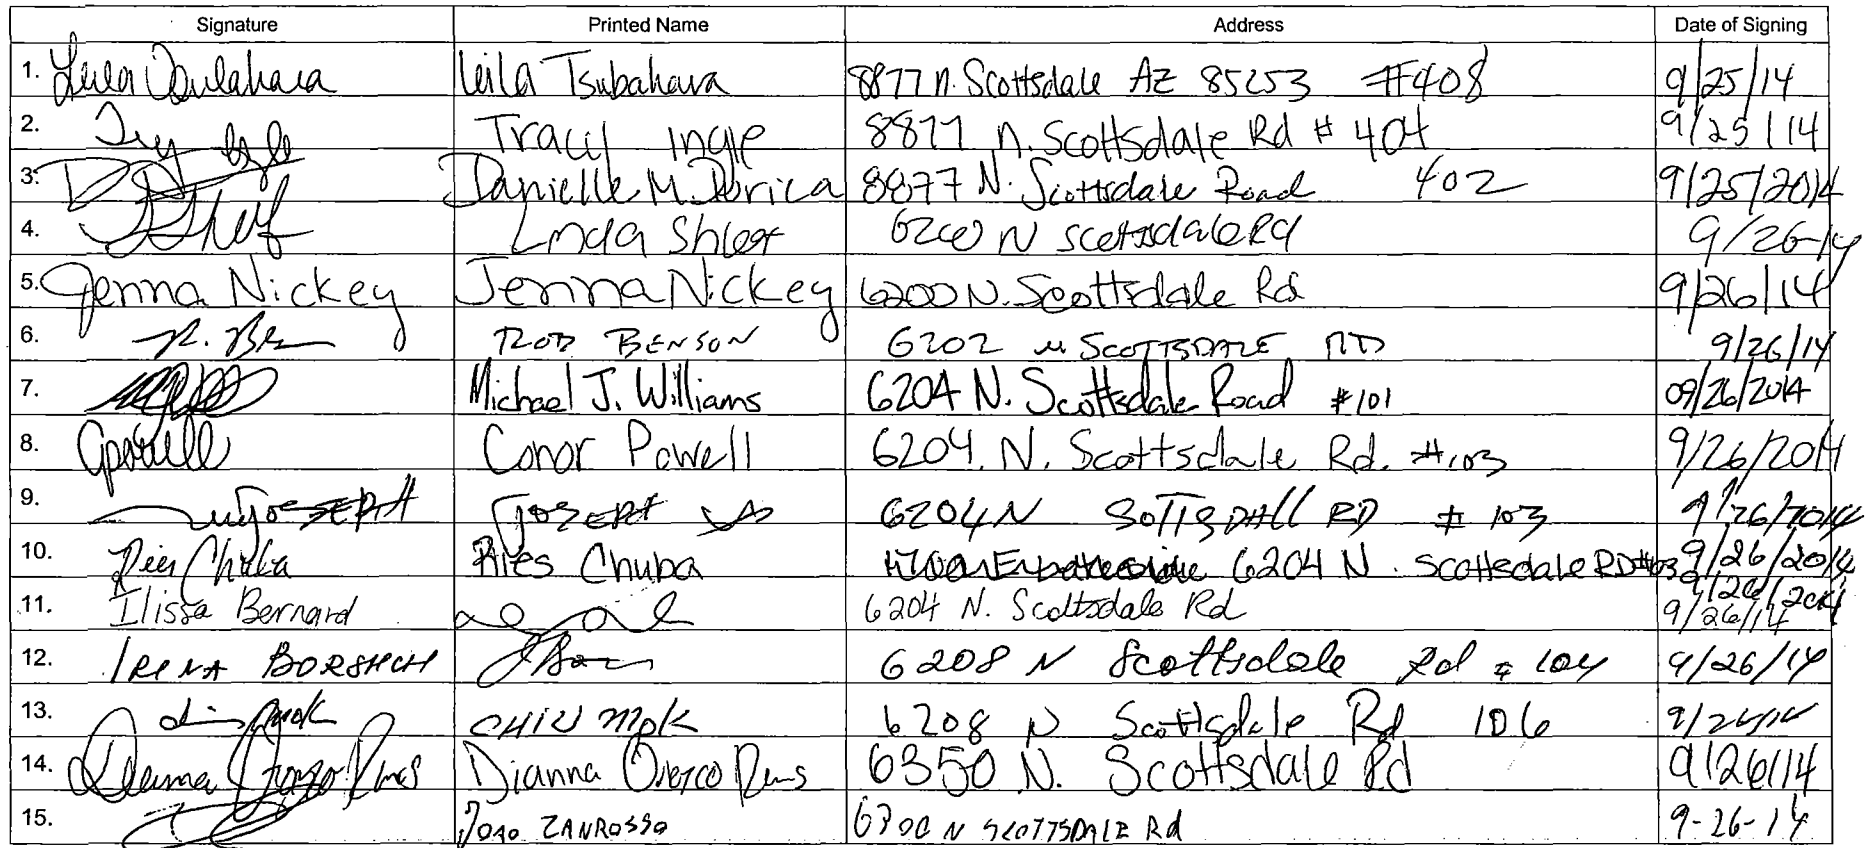 Signature Printed Name Address Date of Signing
1. Leila Tsubahara 8877 N. Scottsdale AZ 85253 #408 9/25/14
2. Tracy Ingle 8877 N. Scottsdale Rd # 404 9/25/14
3. Danielle M. Dorica 8877 N. Scottsdale Road 402 9/25/2014
4. Linda 6200 N Scottsdale Rd 9/26-14
5. Jenna Nickey Jenna Nickey 6200 N. Scottsdale Rd 9/26/14
6. R. Be ROB BENSON 6202 N SCOTTSDALE RD 9/26/14
7. Michael J. Williams 6204 N. Scottsdale Road #101 09/26/2014
8. CPowell Conor Powell 6204 N. Scottsdale Rd. #103 9/26/2014
9. JOSEPH JOSEPH 6204 N SOTTSDALL RD # 103 9/26/2014
10. Ries Chuba Ries Chuba 6204 N. Scottsdale RD #103 9/26/2014
9/26/2014
11. Ilissa Bernard 6204 N. Scottsdale Rd 9/26/14
12. IRENA BORSHCH 6208 N Scottsdale Rd # 104 9/26/14
13. CHIU MOK 6208 N Scottsdale Rd 106 9/26/14
14. Dianna 6350 N. Scottsdale Rd 9/26/14
15. JOAO ZANROSSO N SCOTTSDALE Rd 9-26-14